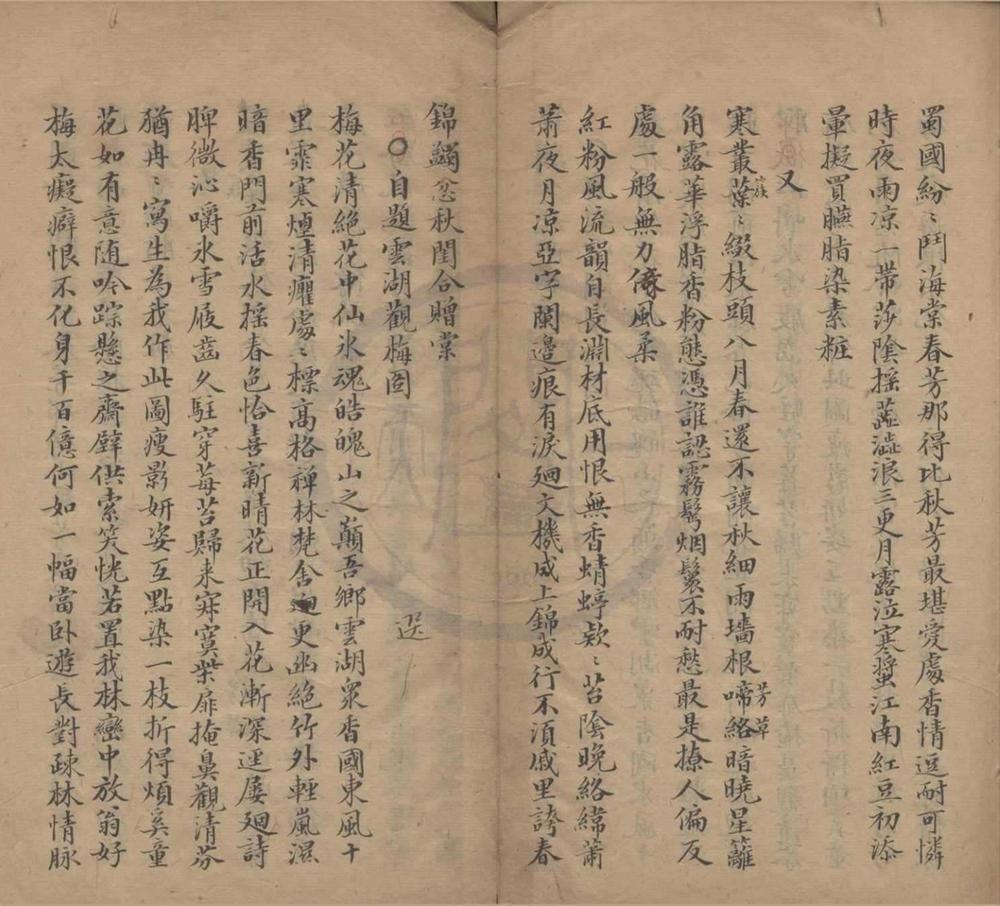 蜀國紛〻鬥海棠春芳那得比秋芳最堪愛處香情逗耐可憐
時夜雨凉一帶莎陰搖蕋澁浪三更月露泣寒螿江南紅豆初添
暈擬買臙脂染素粧
又
寒叢葉〻綴枝頭八月春還不讓秋細雨墻根啼絡暗曉星籬
簇
芳草
角露華浮脂香粉態憑誰認霧鬂烟鬟不耐愁最是撩人偏反
處一般無力倚風柔
紅粉風流韻自長淵材底用恨無香蜻蜓欵〻苔陰晚絡緯蕭
蕭夜月凉亞字闌邊痕有淚廻文機成上錦成行不須戚里誇春
錦蠲忿秋閨合贈棠
○自題雲湖觀梅圖
選
梅花清絕花中仙氷魂皓魄山之巔吾鄉雲湖眾香國東風十
里霏寒煙清癯處〻標高格禅林梵舍迥更幽絕竹外輕嵐濕
暗香門前活水搖春色恰喜新晴花正開入花漸深逕屢廻詩
脾微沁嚼氷雪屐齒久駐穿莓苔歸来寂寞柴扉掩鼻觀清芬
猶冉〻寫生為我作此圖瘦影妍姿互點染一枝折得煩奚童
花如有意随吟踪懸之齋壁供索笑恍若置我林巒中放翁好
梅太癡癖恨不化身千百億何如一幅當卧遊長對疎林情脉